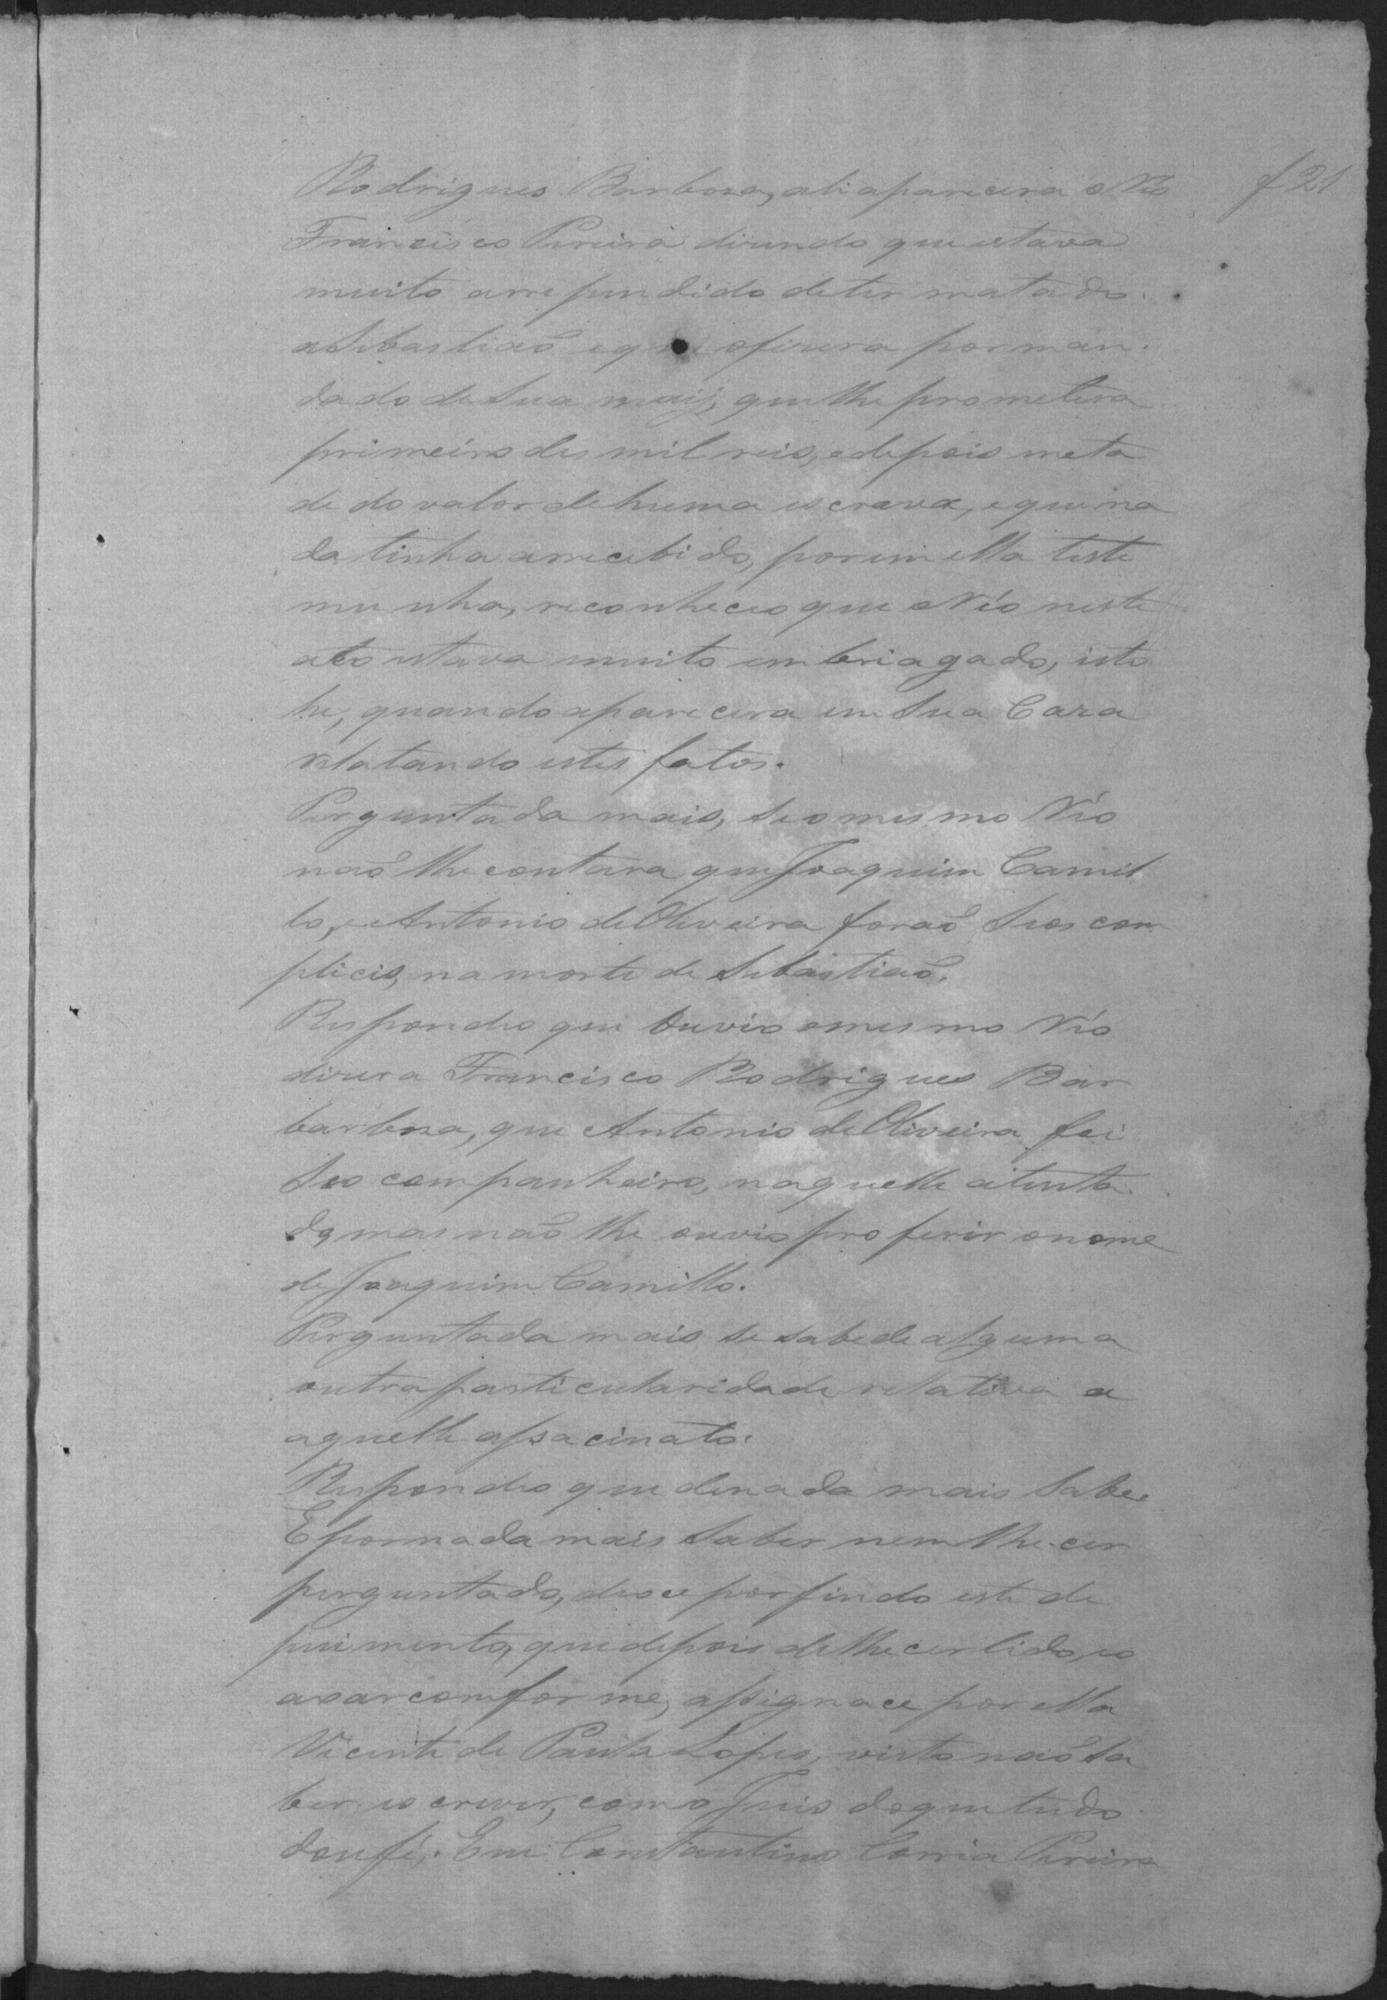 f 21
Rodrigues Barboza, ali aparecera o Réo
Francisco Pereira dizendo que estava
muito arrependido de ter matado
a Sebastiaõ e que ofizera por man
dado de Sua maij, que lhe prometera
primeiro des mil reis, e depois meta
de do valor de huma escrava, e que na
da tinha arrecebido, porem ella teste
munha, reconheceo que o Réo neste
ato estava muito embriagado, isto
he, quando aparecera em Sua Caza
relatando estes fatos.
Perguntada mais, se o mesmo Réo
naõ lhe contara que Joaquim Camil
lo, e Antonio de Oliveira foraõ Seos com
plicis, na morte de Sebastiaõ.
Respondeo que Ouvio o mesmo Réo
dizer a Francisco Rodrigues Bar
barboza, que Antonio de Oliveira foi
Seo companheiro, naquelle atenta
do, mas naõ lhe ouvio proferir o nome
de Joaquim Camillo.
Perguntada mais se sabe de alguma
outra particularidade relativa a
aquelle assacinato.
Respondeo que de nada mais Sabe.
E por nada mais Saber nem lhe cer
perguntado, deoce por findo este de
puimento, que depois de lhe cer lido, eo
axar comforme, assignace por ella
Vicente de Paula Lopes, visto naõ Sa
ber escrever, com o Juis do que tudo
dou fé. Eu Constantino Corria Pereira